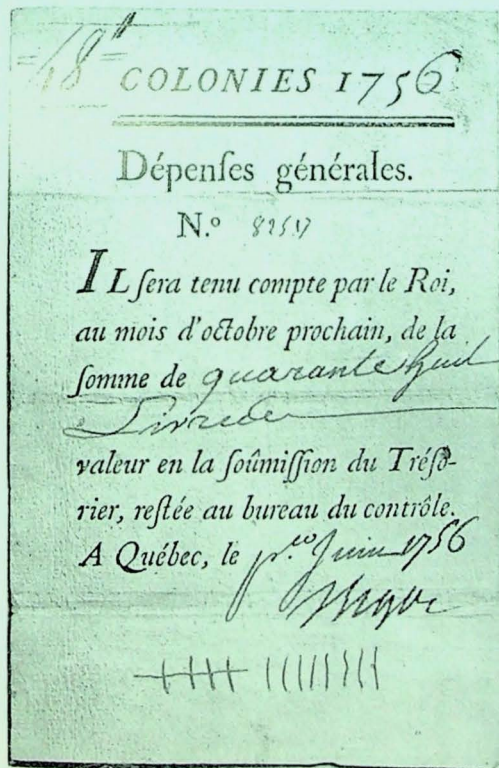 48ᵗᵗ
COLONIES 1756
Dépenſes générales.
N.º
IL ſera tenu compte par le Roi,
au mois d'octobre prochain, de la
ſomme de quarante huit
Livres
valeur en la ſoûmiſſion du Tréſo-
rier, reſtée au bureau du contrôle.
A Québec, le p.er Juin 1756
Bigot